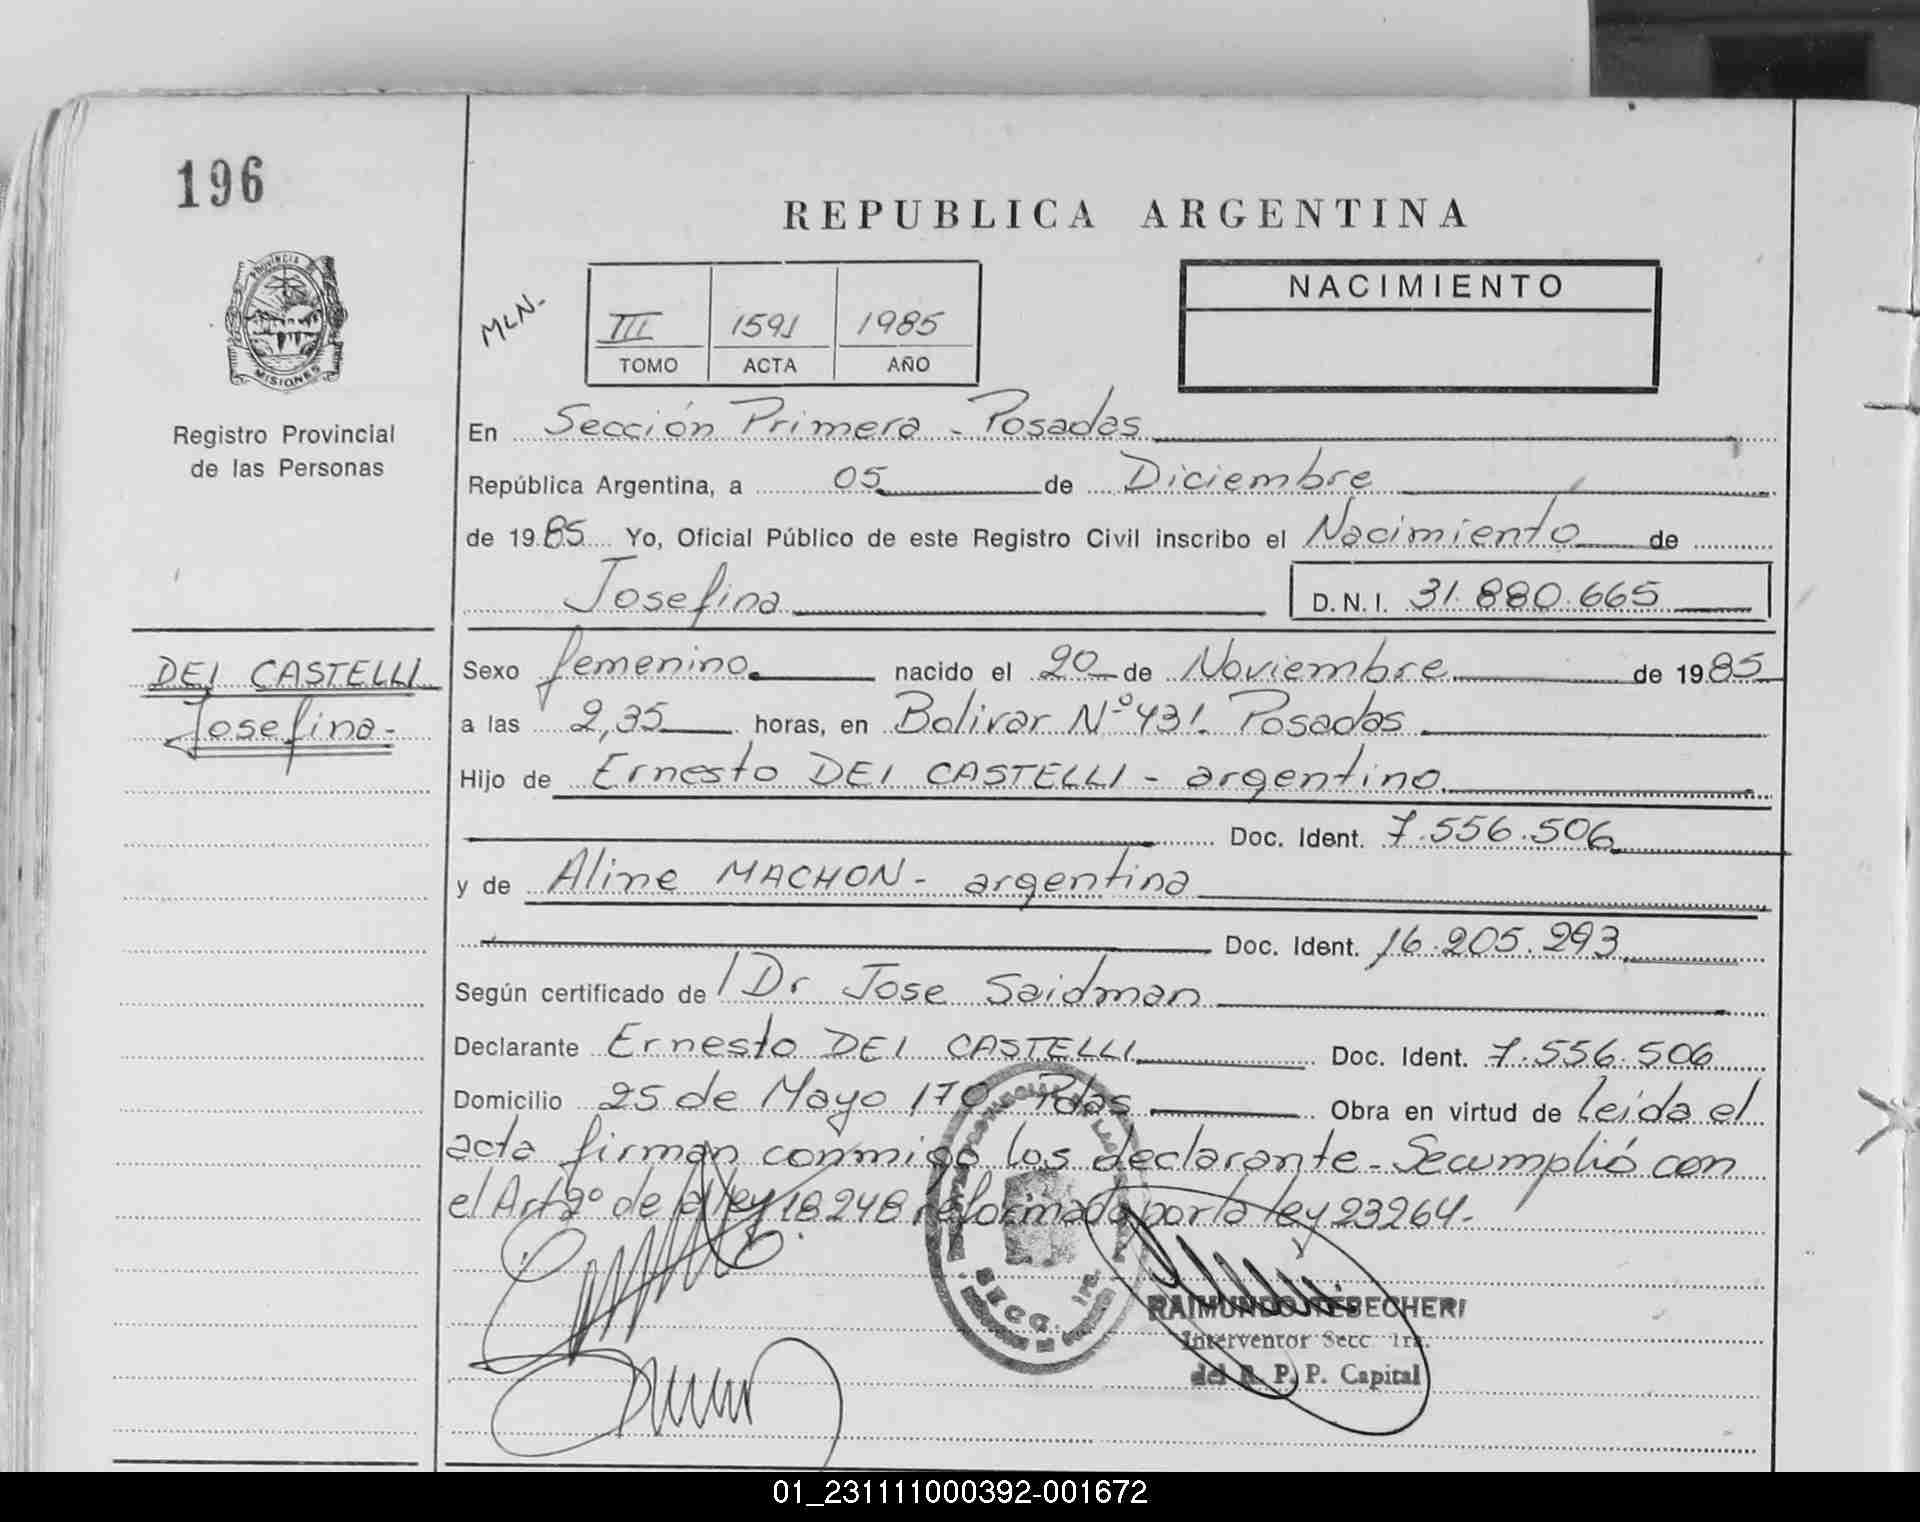 196
REPUBLICA ARGENTINA
PROVINCIA DE
MISIONES
Registro Provincial
de las Personas
MLN-
III 1591 1985
TOMO ACTA AÑO
NACIMIENTO
En Sección Primera - Posadas
República Argentina, a 05 de Diciembre
de 1985 Yo, Oficial Público de este Registro Civil inscribo el Nacimiento de
Josefina D.N.I. 31.880.665
DEI CASTELLI
Josefina-
Sexo femenino nacido el 20 de Noviembre de 1985
a las 2,35 horas, en Bolivar Nº 431. Posadas
Hijo de Ernesto DEI CASTELLI - argentino.
Doc. Ident. 7.556.506
y de Aline MACHON - argentina
Doc. Ident. 16.205.293
Según certificado de Dr Jose Saidman
Declarante Ernesto DEI CASTELLI Doc. Ident. 7.556.506
Domicilio 25 de Mayo 170 Pdas Obra en virtud de leida el
acta firman conmigo los declarante- Secumplió con
el Art 2º de la ley 18248 reformado por la ley 23264-
SECC. 1ra.
RAIMUNDO TEBECHERI
Interventor Secc. 1ra.
del R. P. P. Capital
01_231111000392-001672